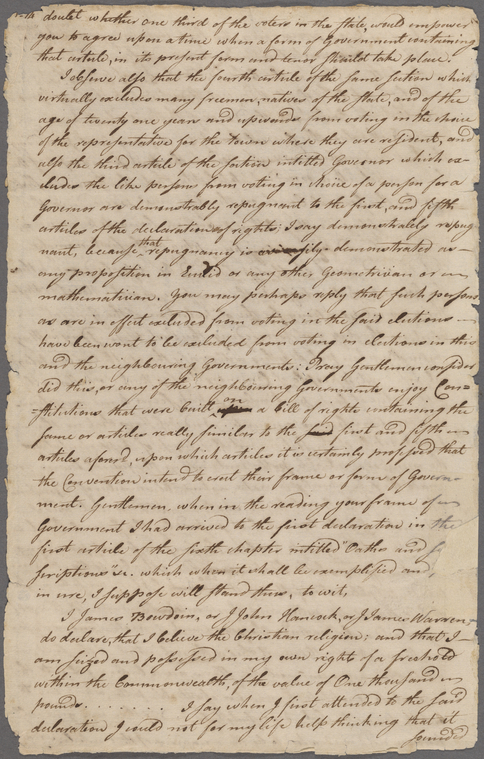 doubt whether one third of the voters in the State, would empower
you to agree upon a time when a form of Government containing
that article, in its present form and tenor should take place.
I observe also that the fourth article of the same section which
virtually excludes many freemen, natives of the State, and of the
age of twenty one years and upwards from voting in the choice
of the representatives for the town where they are resident, and
also the third article of the section intitled Governor which ex-
cludes the like persons from voting in choice of a person for a
Governor are demonstrably repugnant to the first, and fifth
articles of the declaration of rights: I say demonstrably repug
nant, because that repugnancy is as easily demonstrated as
any proposition in Euclid or any other Geometrician or
mathematician. You may perhaps reply that such persons
as are in effect excluded from voting in the said elections
have been wont to be excluded from voting in elections in this
and the neighbouring Governments. Pray Gentlemen consider
did this, or any of the neighbouring Governments enjoy Con=
stitutions that were built upon on a bill of rights containing the
same or articles really similar to the said first and fifth
articles aforesd, upon which articles it is certainly professed that
the Convention intend to erect their frame or form of Govern
ment. Gentlemen, when in the reading your frame of
Government I had arrived to the first declaration in the
first article of the sixth chapter intitled "Oaths and S
scriptions" &c. which when it shall be exemplified and,
in use, I suppose will stand thus, to wit,
I James Bowdoin, or I John Hancock, or I James Warren,
do declare, that I believe the Christian religion: and that I
am seized and possessed in my own right of a freehold
within the Commonwealth, of the value of One thousand
pounds. . . . . . . . I say when I first attended to the said
declaration I could not for my life help thinking that it
sounded